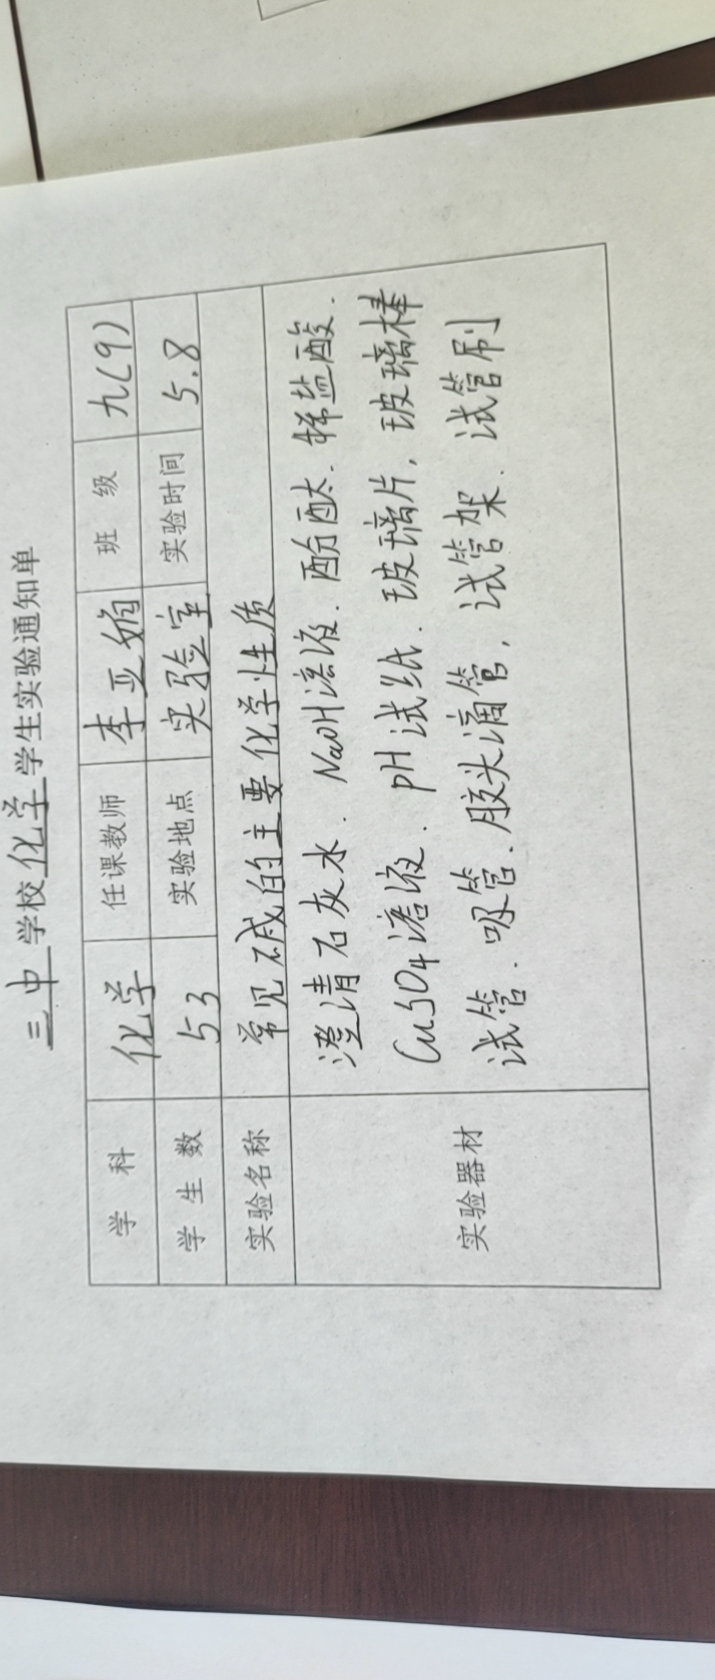 三中学校化学学生实验通知单
学 科 化学 任课教师 李亚娟 班 级 九(9)
学 生 数 53 实验地点 实验室 实验时间 5.8
实验名称 常见碱的主要化学性质
实验器材
澄清石灰水、NaOH溶液、酚酞、稀盐酸、
CuSO4溶液、pH试纸、玻璃片，玻璃棒
试管、吸管、胶头滴管，试管架、试管刷